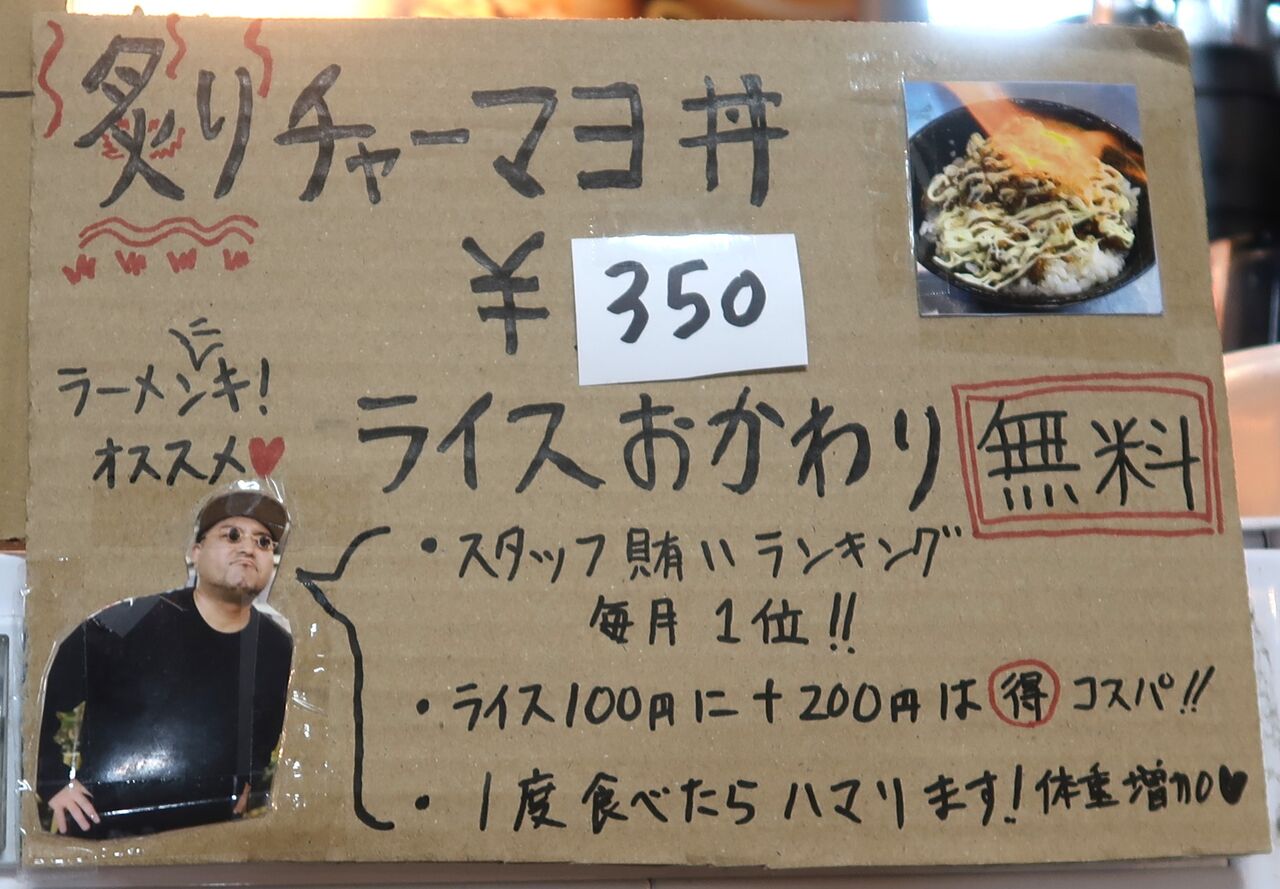 炙りチャーマヨ丼
¥350
ラーメンニキ!
オススメ♥
ライスおかわり無料
・スタッフ賄いランキング
毎月1位!!
・ライス100円に+200円は得コスパ!!
・1度食べたらハマります!体重増加♥